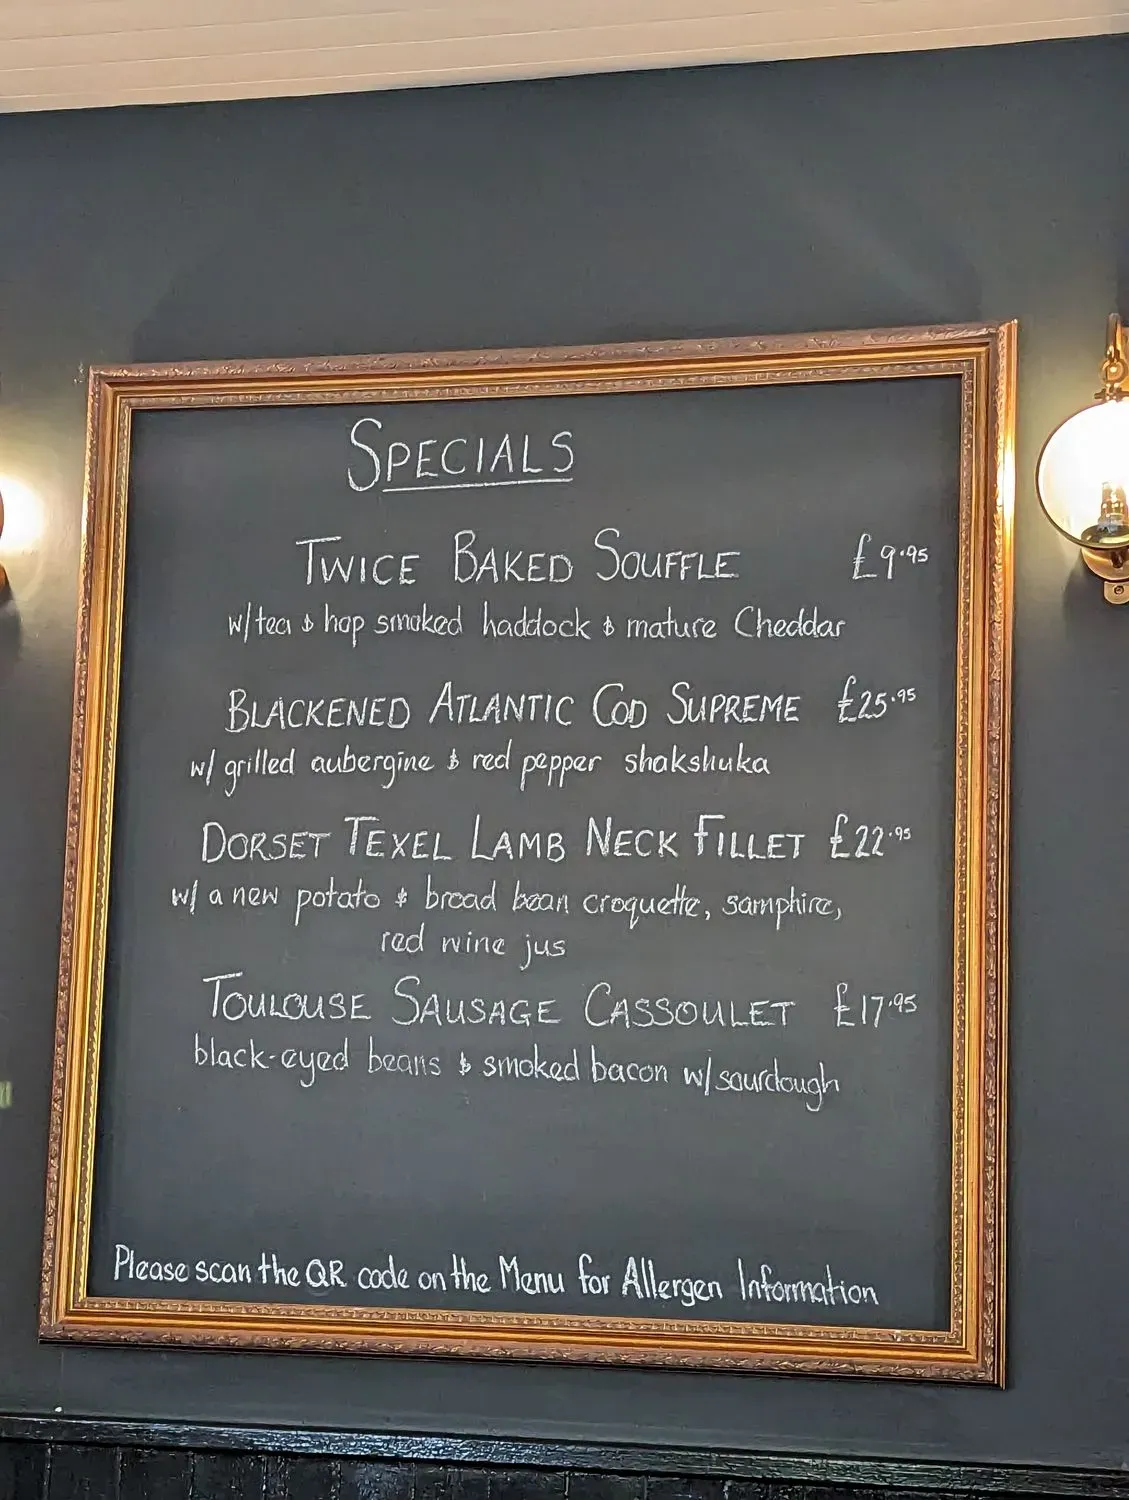 SPECIALS
TWICE BAKED SOUFFLE £9.95
w/tea & hop smoked haddock & mature Cheddar
BLACKENED ATLANTIC COD SUPREME £25.95
w/ grilled aubergine & red pepper shakshuka
DORSET TEXEL LAMB NECK FILLET £22.95
w/ a new potato & broad bean croquette, samphire,
red wine jus
TOULOUSE SAUSAGE CASSOULET £17.95
black-eyed beans & smoked bacon w/sourdough
Please scan the QR code on the Menu for Allergen Information